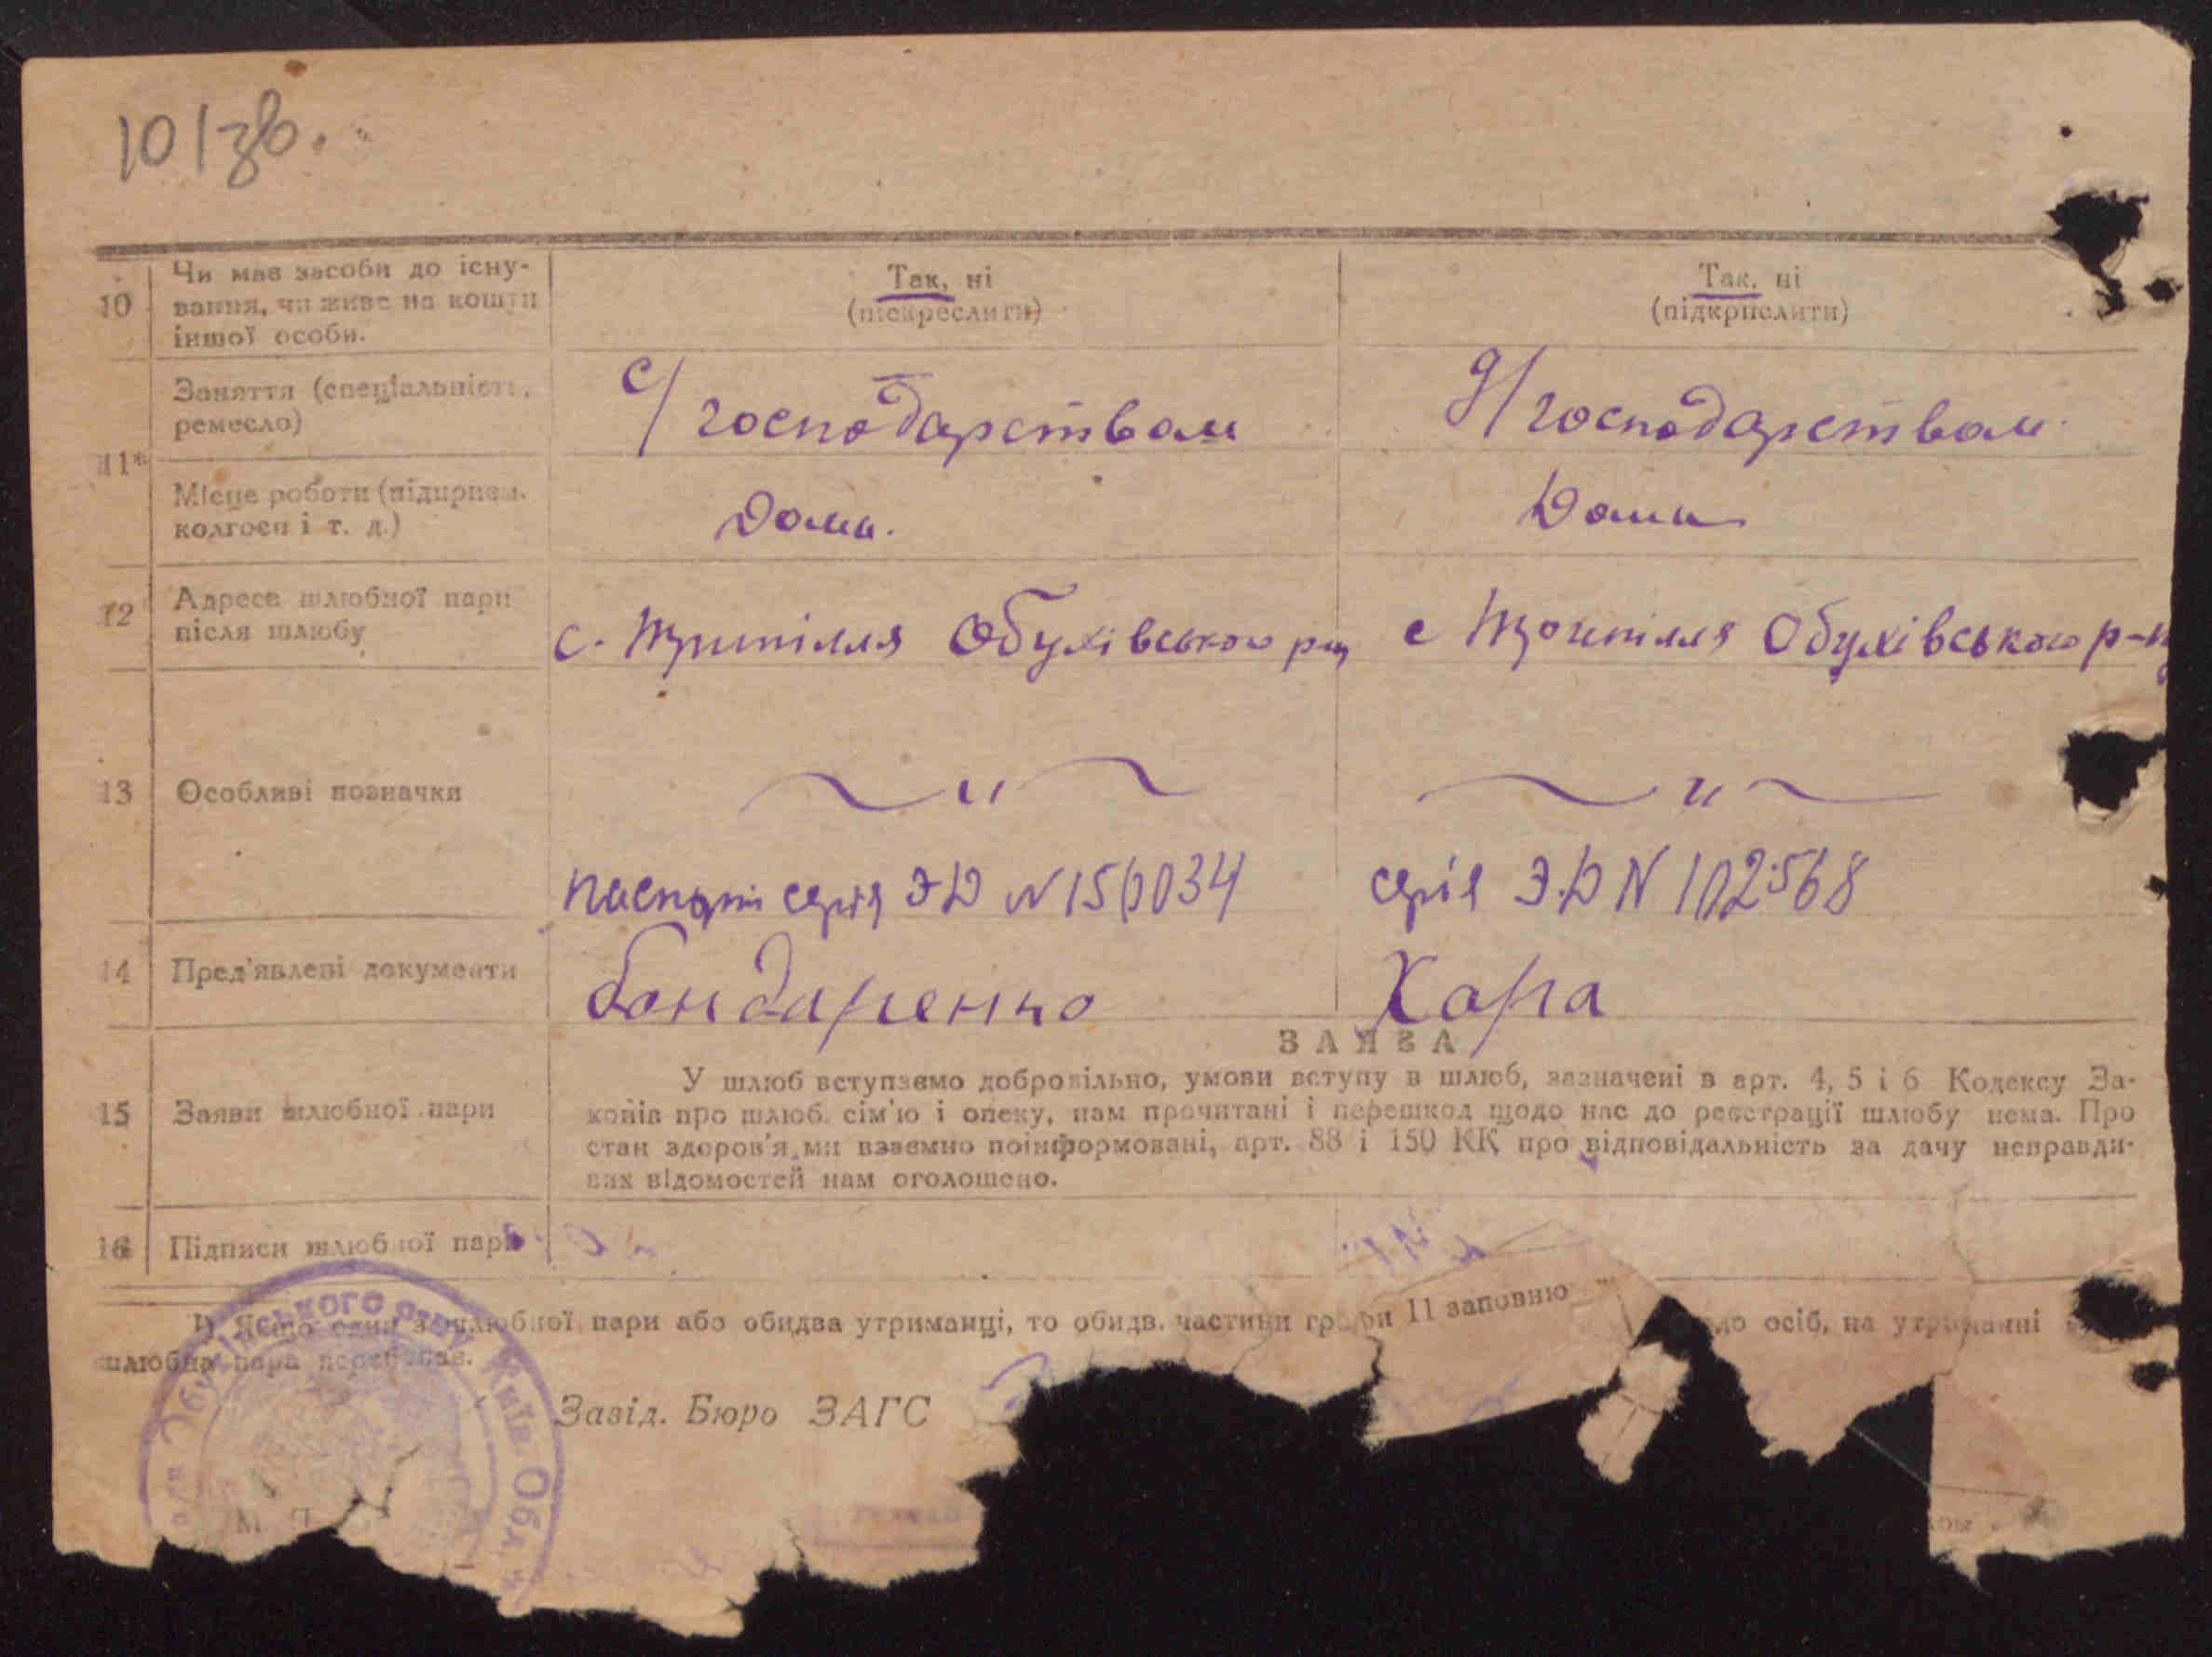 10/зв.
10
Чи має засоби до існу-
вання, чи живе на кошти
іншої особи.
Так, ні
(підкреслити)
Так, ні
(підкрпслити)
11*
Заняття (спеціальність,
ремесло)
С/господарствам
Д/господарствам.
Місце роботи (підприєм.
колгосп і т. д.)
Дома.
Дома
12
Адреса шлюбної пари
після шлюбу
с. Трипілля Обухівського р-ну
с Трипілля Обухівського р-ну
13
Особливі позначки
— " —
— " —
паспорт серія ЭД N 150034
серія Э.Д N 102568
14
Пред'явлені документи
Бондаренко
Хара
ЗАЯВА
15
Заяви шлюбної пари
У шлюб вступаємо добровільно, умови вступу в шлюб, зазначені в арт. 4, 5 і 6 Кодексу За-
конів про шлюб. сім'ю і опеку, нам прочитані і перешкод щодо нас до реєстрації шлюбу нема. Про
стан здоров'я ми взаємно поінформовані, арт. 88 і 150 КК про відповідальність за дачу неправди-
вих відомостей нам оголошено.
16
Підписи шлюбної пари
1) Якщо один з шлюбної пари або обидва утриманці, то обидв. частини графи 11 заповню до осіб, на утриманні
шлюбна пара перебуває.
Завід. Бюро ЗАГС
Київ Обл
М